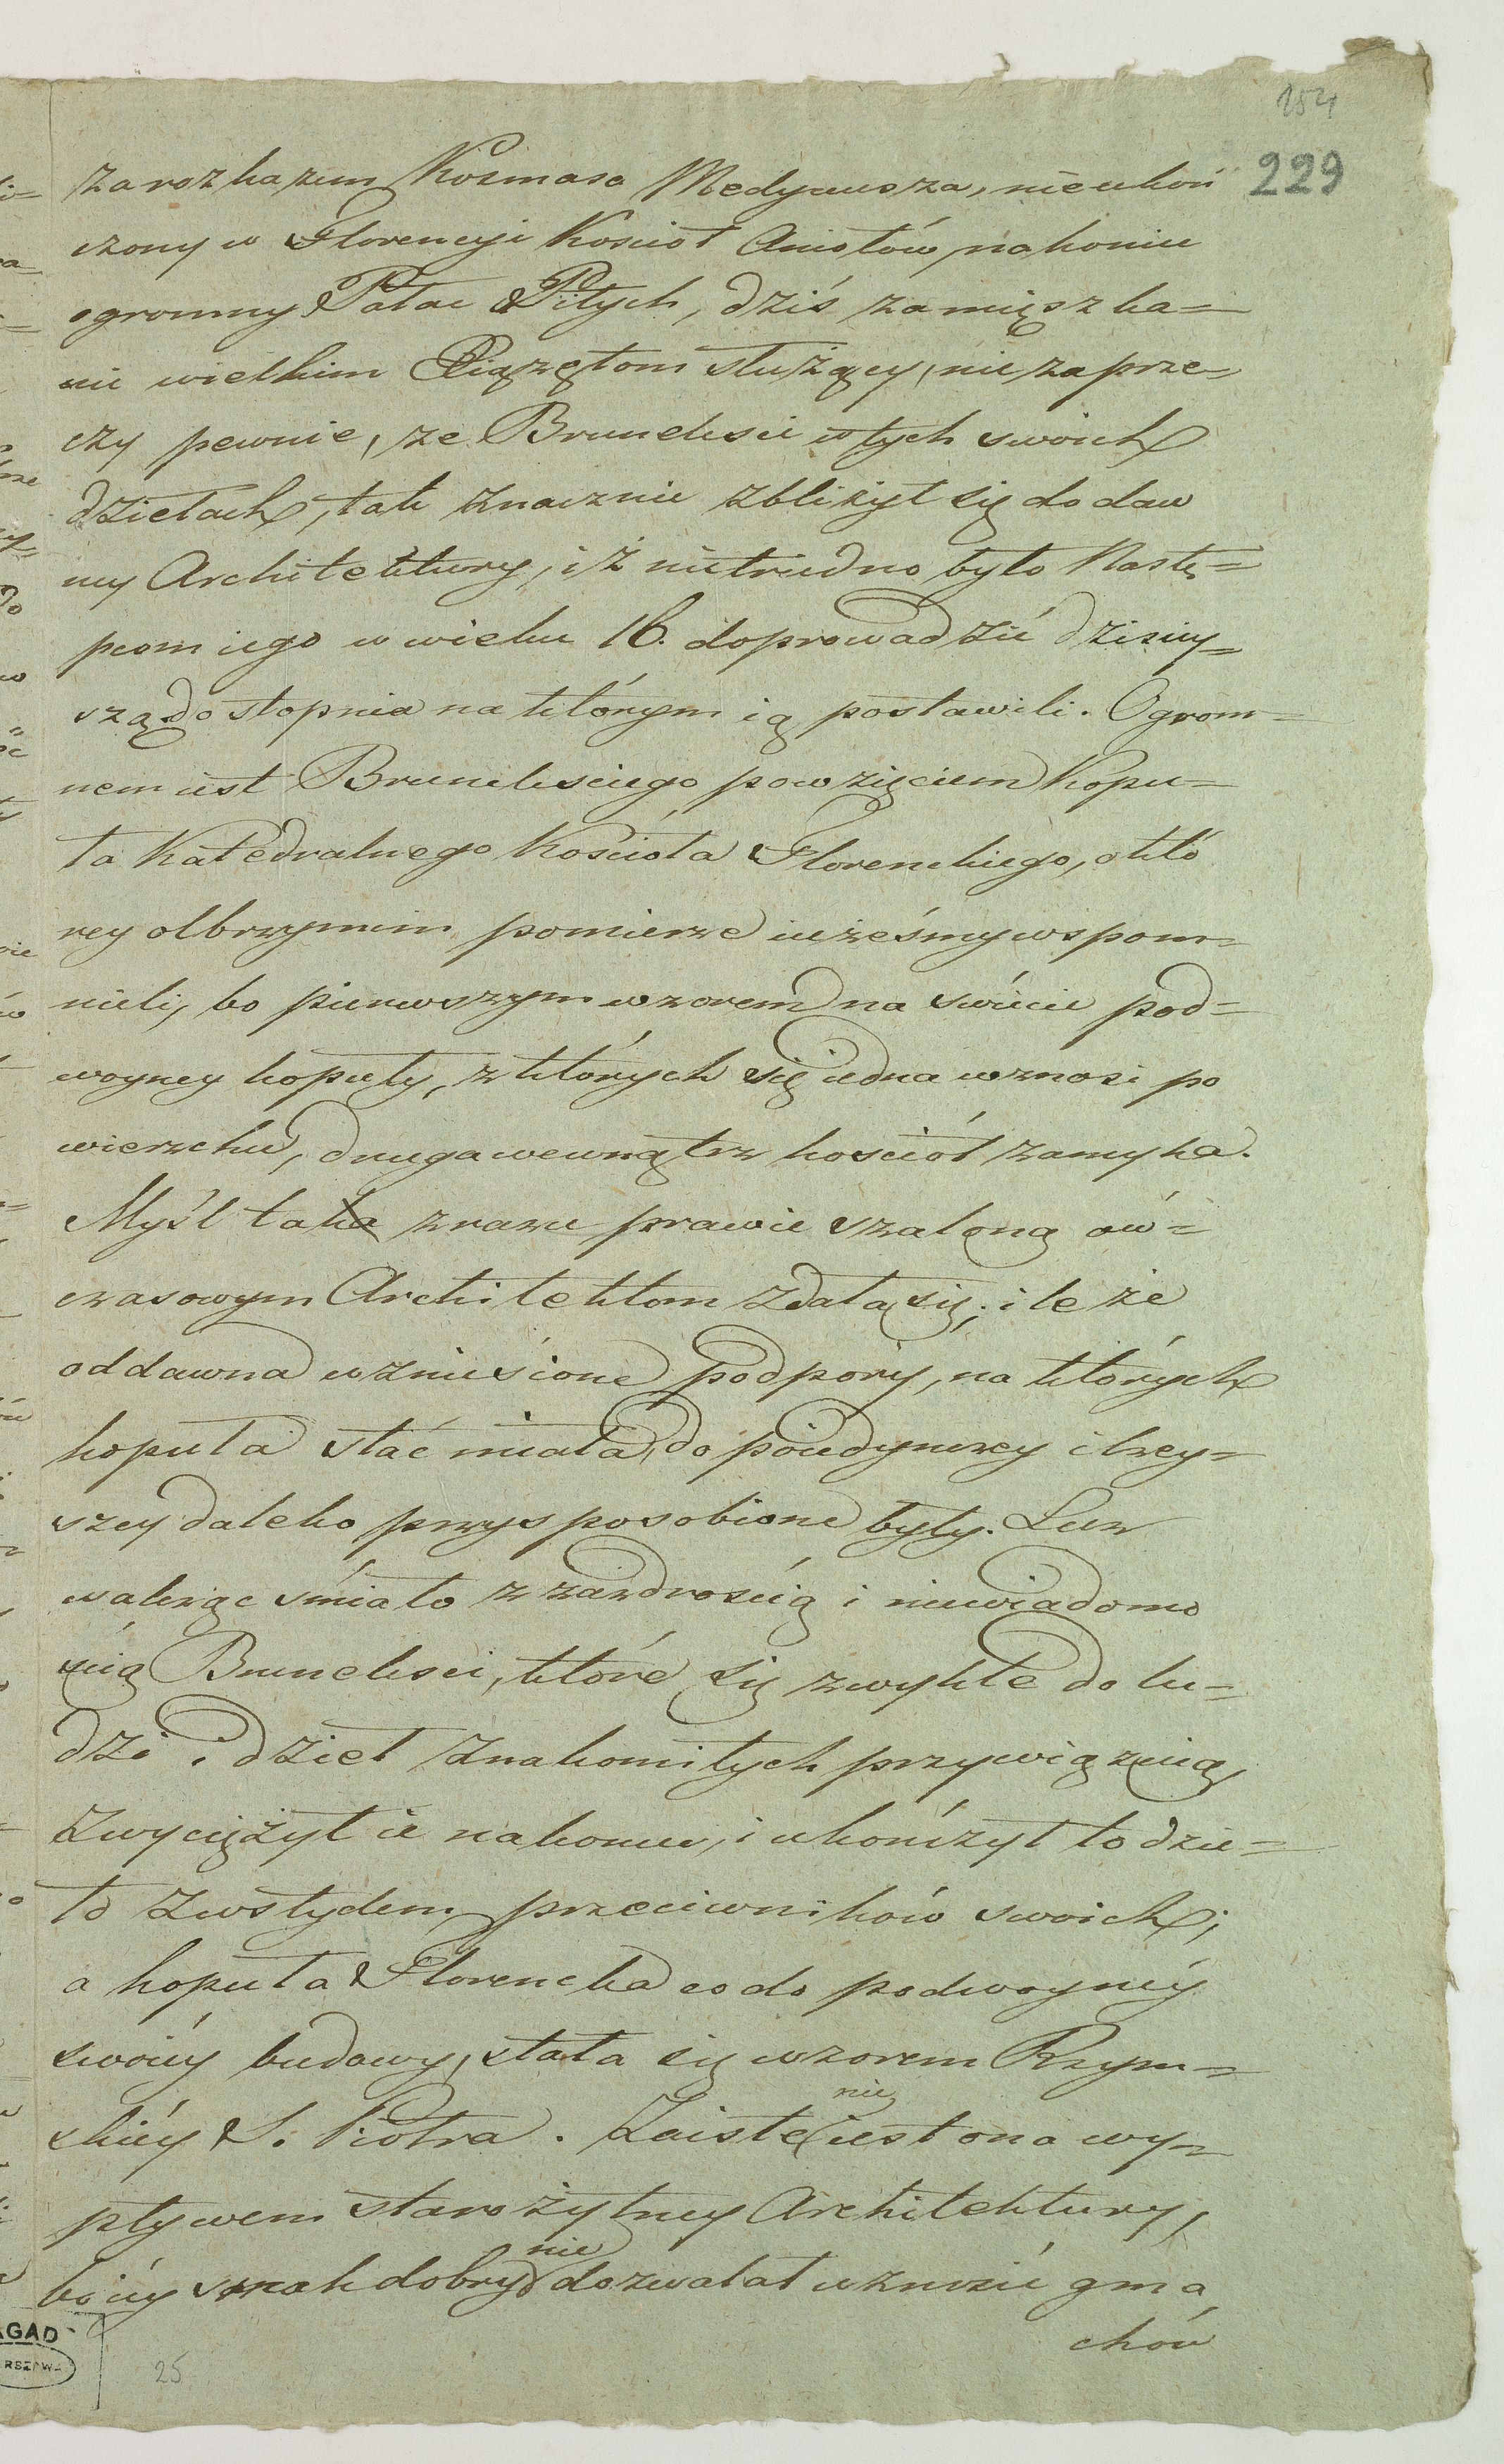 154
229
za rozkazem Kosmasa Medyceusza, nieukoń
czony w Florencyi Kościoł Aniołów, nakoniec
ogromny Pałac Pitych, dziś zamięszka=
nie wielkim Xiążętom służący, nie zaprze=
czy pewnie, że Brunelesci w tych swoich
dziełach, tak znacznie zbliżył się do daw
ney Architektury, iż nietrudno było Nastę=
pcom iego w wieku 16. doprowadzić dzisiey=
szą do stopnia na którym ią postawili. Ogrom=
nem iest Brunelesciego powzięciem Kopu=
ła Katedralnego Kościoła Florenckiego, o któ
rey olbrzymim pomierze iużeśmy wspom=
nieli, bo pierwszym wzorem na świecie pod=
woyney kopuły, z których się iedna wznosi po
wierzchu, druga wewnątrz kościół zamyka.
Myśl taka zrazu prawie szaloną ów=
czasowym Architektom zdała się; ile że
oddawna wzniesione podpory, na których
kopuła stać miała, do poiedynczey i lżey=
szey daleko przysposobione były. Lecz
walcząc śmiało z zazdrością i niewiadomo
ścią Brunelesci, które się zwykle do lu=
dzi i dzieł znakomitych przywiązuią,
zwyciężył ie nakoniec, i ukończył to dzie=
ło z wstydem przeciwników swoich;
a kopuła Florencka co do podwoyney
swoiéy budowy, stała się wzorem Rzym=
skiéy S. Piotra. Zaiste nie iest ona wy=
pływem starożytney Architektury,
bo iéy smak dobry nie dozwalał wznosić gma
chów
AGAD
25